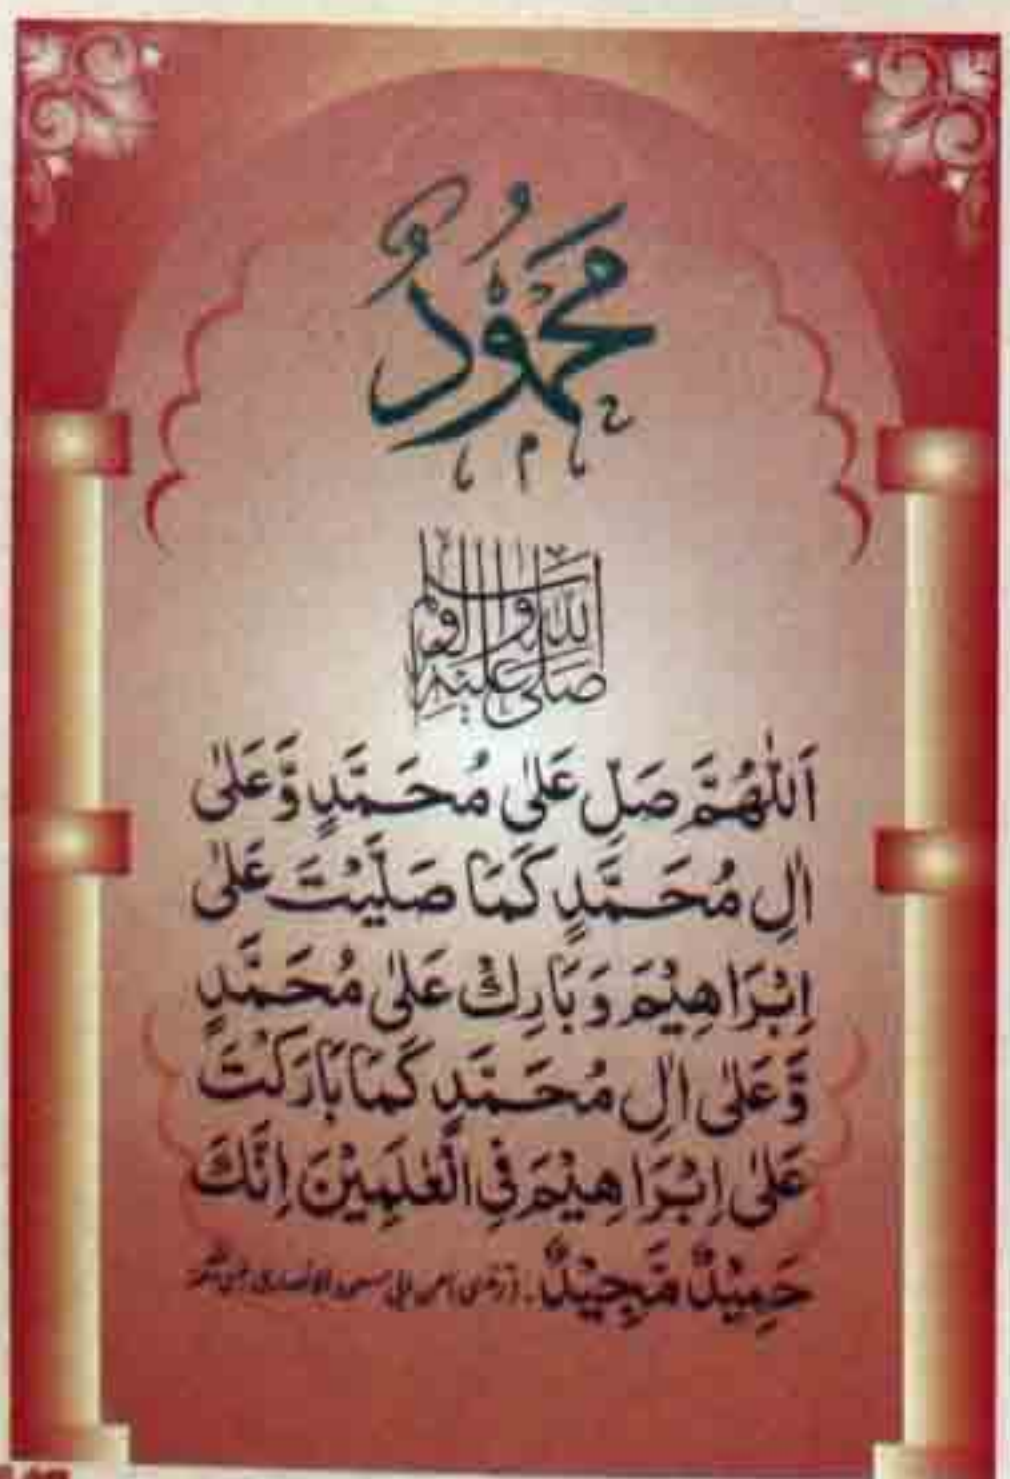 مَحْمُوْدٌ
صَلَّى اللّٰهُ عَلَيْهِ وَاٰلِهٖ وَسَلَّمَ
اَللّٰهُمَّ صَلِّ عَلٰى مُحَمَّدٍ وَّعَلٰى
اٰلِ مُحَمَّدٍ كَمَا صَلَّيْتَ عَلٰى
اِبْرَاهِيْمَ وَبَارِكْ عَلٰى مُحَمَّدٍ
وَّعَلٰى اٰلِ مُحَمَّدٍ كَمَا بَارَكْتَ
عَلٰى اِبْرَاهِيْمَ فِي الْعٰلَمِيْنَ اِنَّكَ
حَمِيْدٌ مَّجِيْدٌ۔ (ترمذی عن ابی مسعود الانصاری